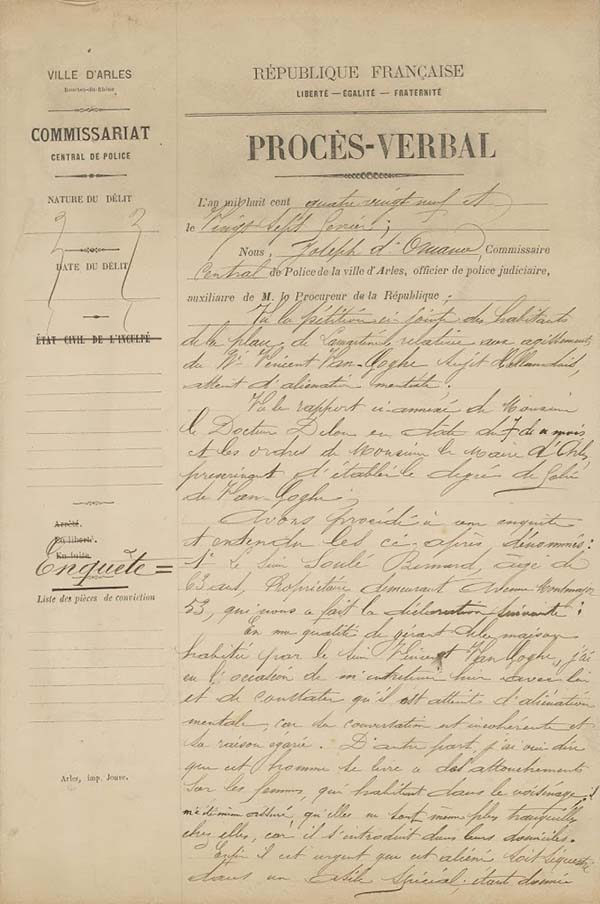 VILLE D'ARLES
Bouches-du-Rhône
COMMISSARIAT
CENTRAL DE POLICE
NATURE DU DÉLIT
DATE DU DÉLIT
ÉTAT CIVIL DE L'INCULPÉ
Arrêté.
En liberté.
En fuite.
Enquête =
Liste des pièces de conviction
Arles, imp. Jouve.
RÉPUBLIQUE FRANÇAISE
LIBERTÉ — ÉGALITÉ — FRATERNITÉ
PROCÈS-VERBAL
L'an mil huit cent quatre vingt neuf et
le Vingt Sept février;
Nous, Joseph d'Ornano, Commissaire
Central de Police de la ville d'Arles, officier de police judiciaire,
auxiliaire de M. le Procureur de la République;
Vu la pétition ci jointe des habitants
de la place de relative aux agissements
du Vincent Van-Goghe, sujet Hollandais,
atteint d'aliénation mentale.
Vu le rapport ci annexé de Monsieur
le Docteur Delon en date du 7 de ce mois
et les ordres de Monsieur le Maire d'Arles,
prescrivant d'établir le degré de folie
de Van-Goghe;
Avons procédé à une enquête
et entendu les ci-après dénommés:
1° Le Sieur Soulé Bernard, âgé de
63 ans, Propriétaire demeurant Avenue Montmajor
53, qui nous a fait la déclaration suivante:
En ma qualité de gérant de la maison
habitée par le Sieur Vincent Van Goghe, j'ai
eu l'occasion de m'entretenir hier avec lui
et de constater qu'il est atteint d'aliénation
mentale, car sa conversation est incohérente et
sa raison égarée. D'autre part, j'ai ouï dire
que cet homme se livre à des attouchements
sur les femmes, qui habitent dans le voisinage; il
m'a été même assuré, qu'elles ne sont même plus tranquilles
chez elles, car il s'introduit dans leurs domiciles.
Enfin il est urgent que cet aliéné soit séquestré
dans un asile spécial, étant donnée